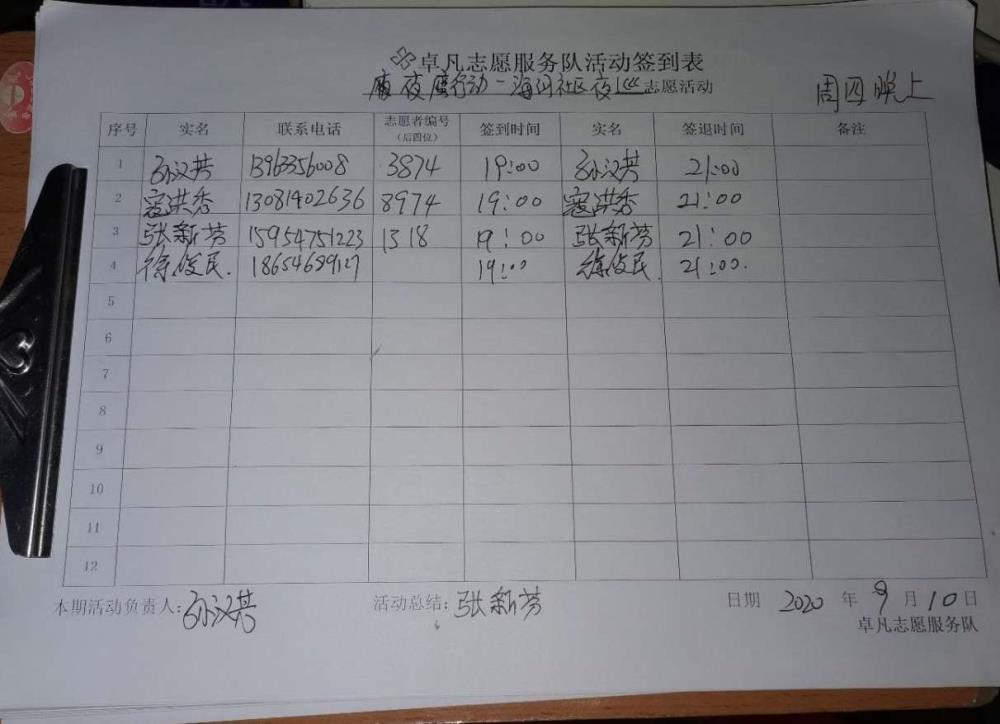 卓凡志愿服务队活动签到表
夜鹰行动-海河社区夜巡志愿活动
周四晚上
序号 实名 联系电话 志愿者编号(后四位) 签到时间 实名 签退时间 备注
1 孙汉芬 13963356008 3874 19:00 孙汉芬 21:00
2 寇洪秀 13081402636 8974 19:00 寇洪秀 21:00
3 张新芳 15954751223 1318 19:00 张新芳 21:00
4 徐俊民. 18654689127 19:00 徐俊民. 21:00.
5
6
7
8
9
10
11
12
本期活动负责人:孙汉芬 活动总结:张新芳 日期 2020 年 9 月 10 日
卓凡志愿服务队